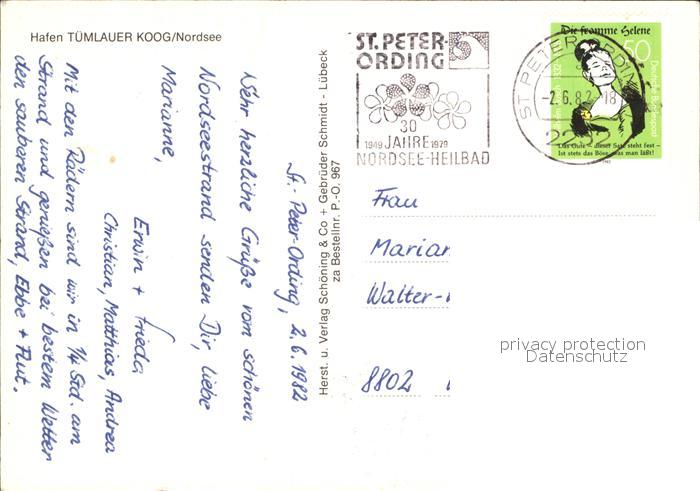 Hafen TÜMLAUER KOOG/Nordsee
St.-Peter-Ording, 2.6.1982
Sehr herzliche Grüße vom schönen
Nordseestrand senden Dir, liebe
Marianne,
Erwin + Frieda
Christian, Matthias, Andrea
Mit den Rädern sind wir in 1/4 Std. am
Strand und genießen bei bestem Wetter
den sauberen Strand, Ebbe + Flut.
Herst. u. Verlag Schöning & Co + Gebrüder Schmidt - Lübeck
za Bestellnr. P.-O. 967
ST. PETER-
ORDING
30
1949 JAHRE 1979
NORDSEE-HEILBAD
ST PETER-ORDING
-2.6.82-18
2252
Die fromme Helene
50
Deutsche Bundespost
Das Gute – dieser Satz steht fest –
Ist stets das Böse, was man läßt!
Frau
Marian
Walter-
8802
privacy protection
Datenschutz